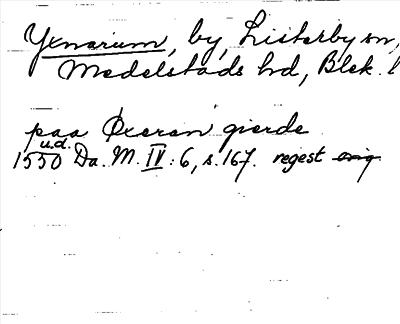 Yxnarum, by, Listerby sn,
Medelstads hd, Blek. l
paa Øxeran gierde
u.d.
1550 Da. M. IV: 6, s. 167. regest orig